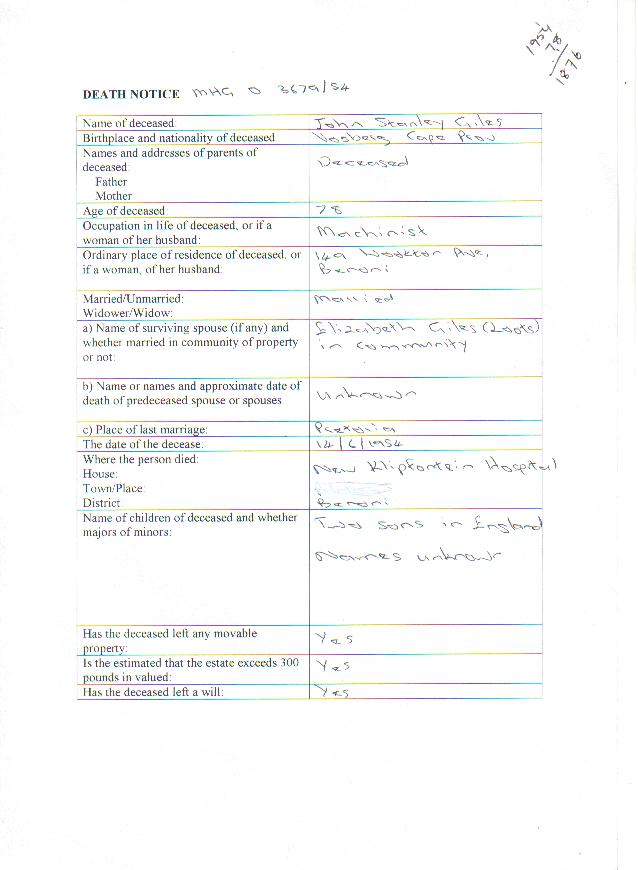 1954
78
1876
DEATH NOTICE MHG O 3679/54
Name of deceased: John Stanley Giles
Birthplace and nationality of deceased Vosberg Cape Prov
Names and addresses of parents of
deceased: Deceased
Father
Mother
Age of deceased: 78
Occupation in life of deceased, or if a
woman of her husband: Machinist
Ordinary place of residence of deceased, or 149 Ave,
if a woman, of her husband: Benoni
Married/Unmarried: Married
Widower/Widow:
a) Name of surviving spouse (if any) and Elizabeth Giles (Loots)
whether married in community of property in community
or not:
b) Name or names and approximate date of
death of predeceased spouse or spouses unknown
c) Place of last marriage: Pretoria
The date of the decease: 14/6/1954
Where the person died: New Klipfontein Hospital
House:
Town/Place:
District: Benoni
Name of children of deceased and whether Two sons in England
majors of minors:
Names unknown
Has the deceased left any movable Yes
property:
Is the estimated that the estate exceeds 300 Yes
pounds in valued:
Has the deceased left a will: Yes